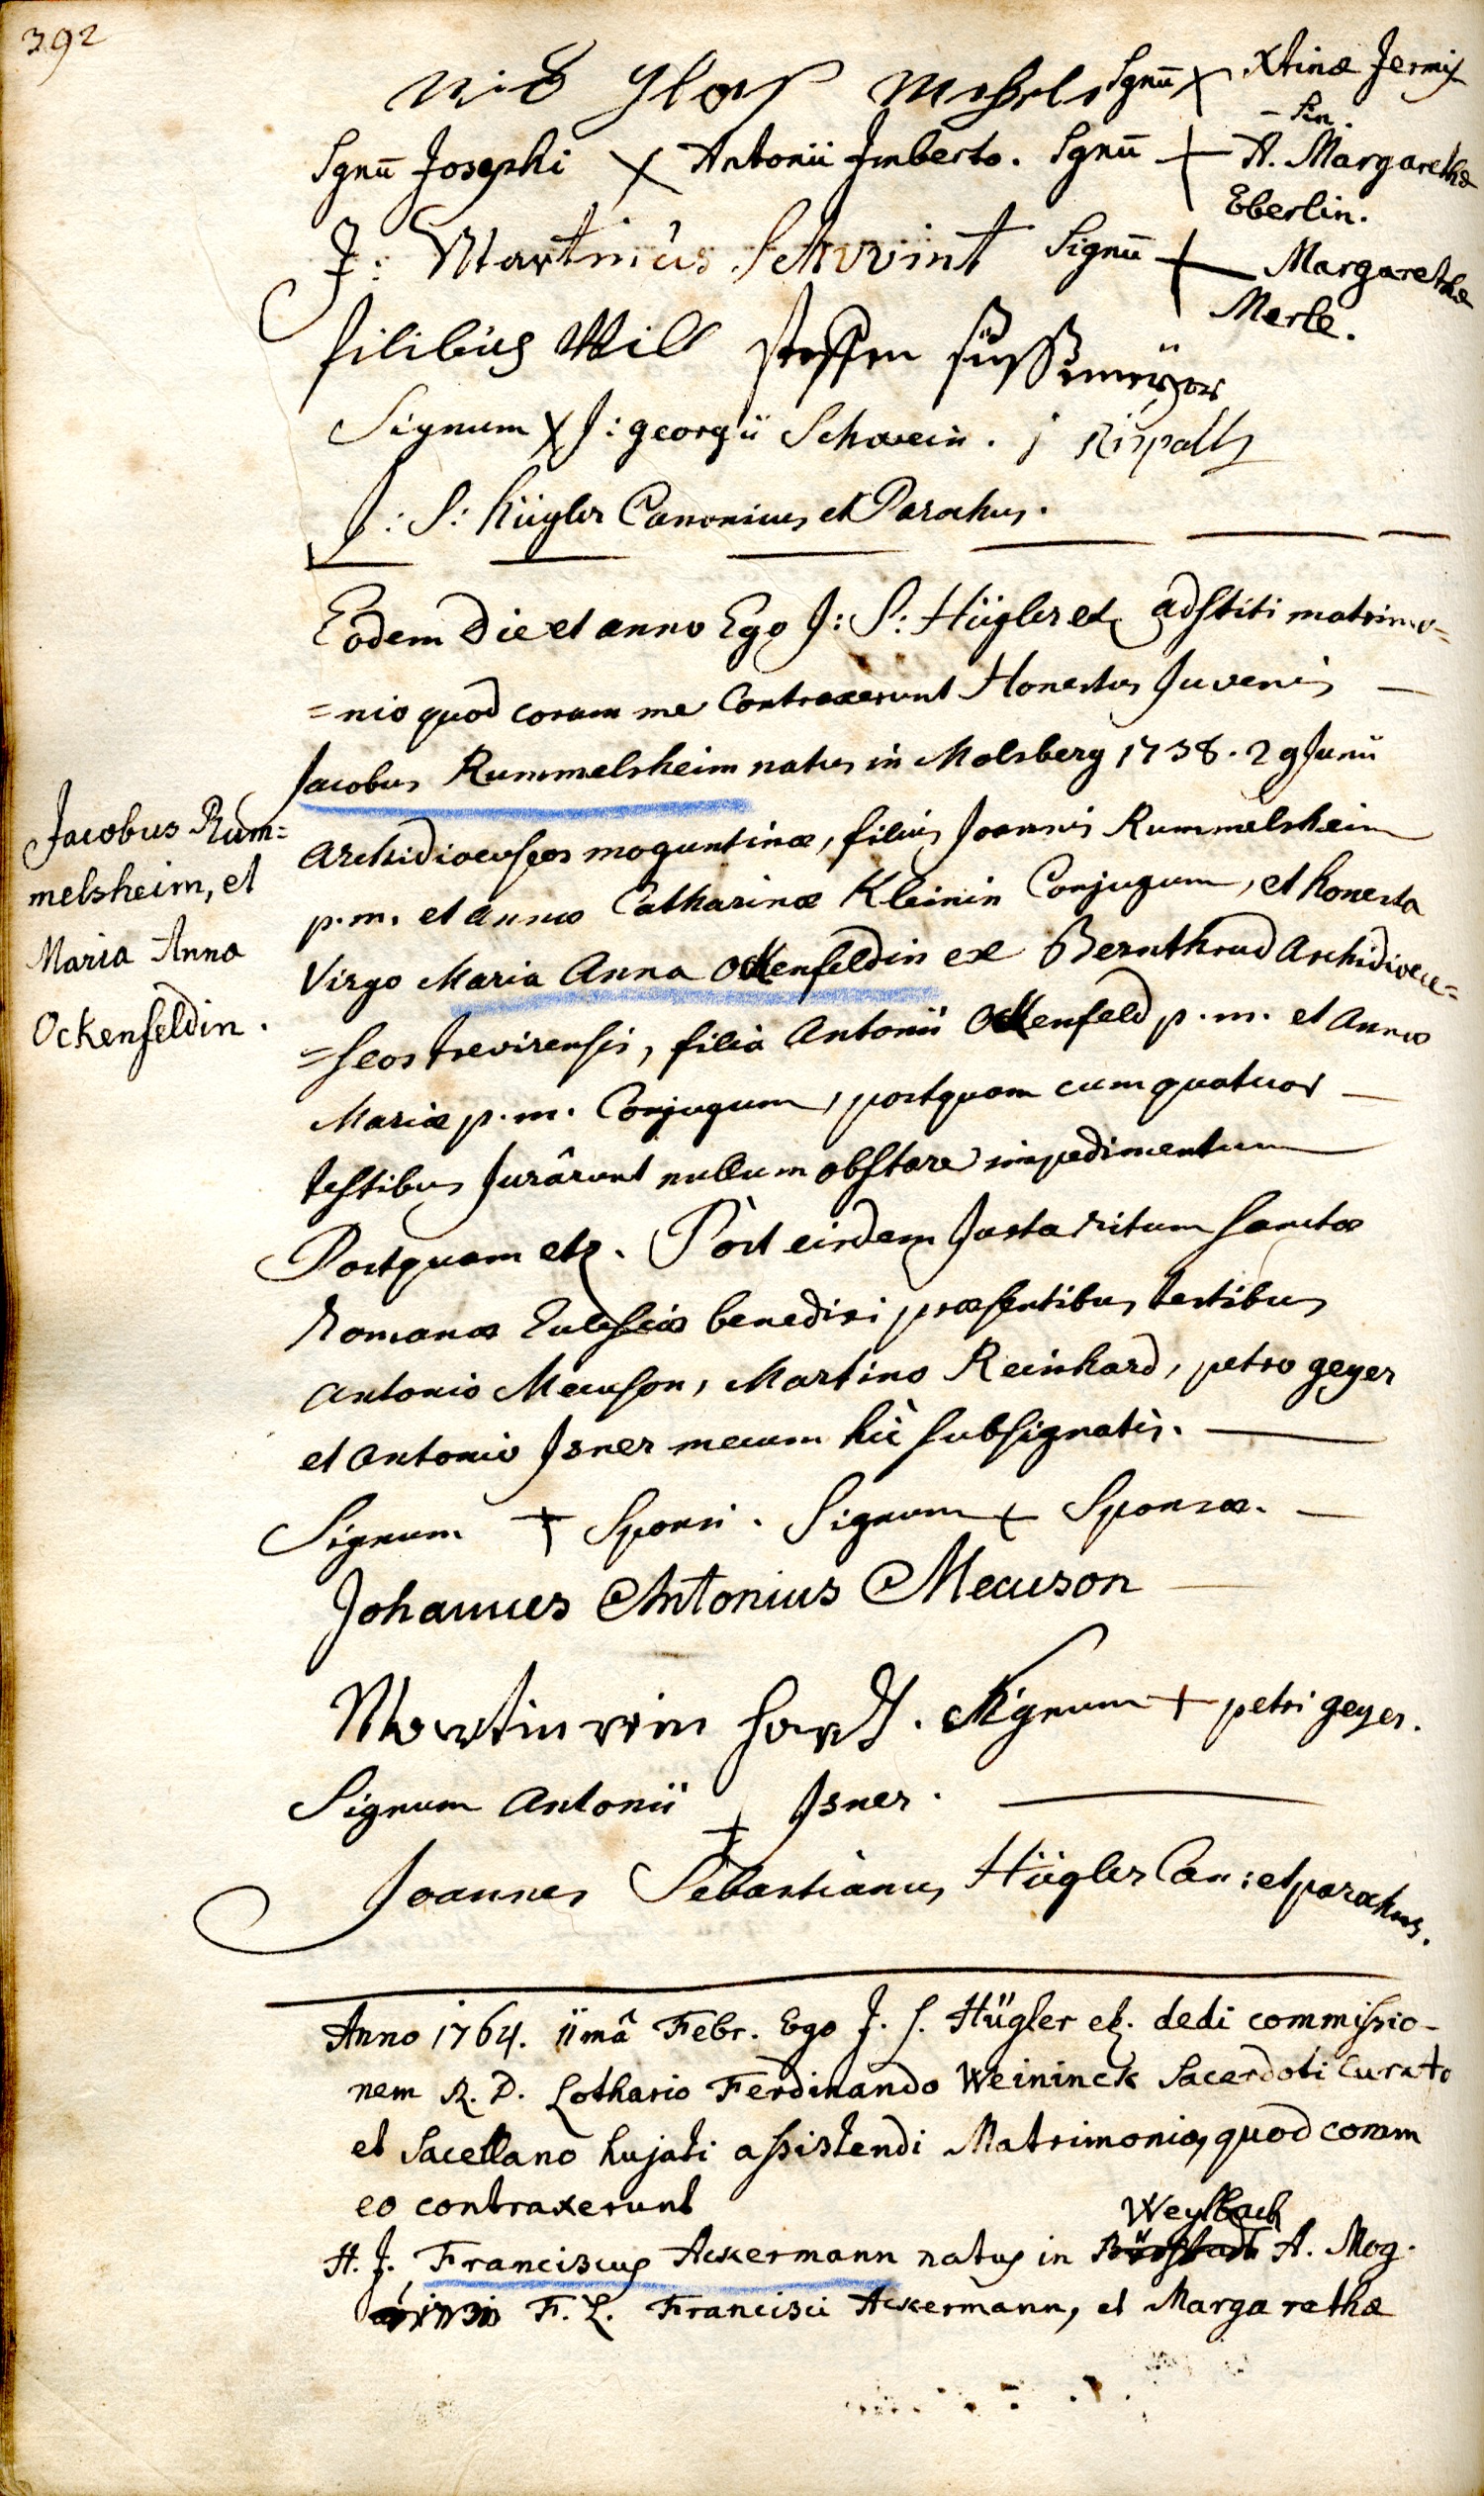 392
Sgnū x Xtinæ Jermis
- sin.
Sgnū Josephi x Antonii Imberto. Sgnū + A. Margarethæ
Eberlin.
J: Martinus Schwint Signū + Margarethæ
Merle.
filibus Will steffen
Signum X J: georgii Schwein. j
J: S: Hügler Canonicus et Parochus.
Eodem Die et anno Ego J: S: Hügler etz adstiti matrimo=
=nio quod coram me Contraxerunt Honestus Juvenis
Jacobus Rummelsheim natus in Molsberg 1738. 29 Junii
Archidioeceseos moguntinæ, filius Joannis Rummelsheim
p.m. et annæ Catharinæ Kleinin Conjugum, et honesta
Virgo Maria Anna Ockenfeldin ex Bernthrud Archidioece=
=seos trevirensis, filia Antonii Ockenfeld p.m. et Annæ
Mariæ p.m. Conjugum, postquam cum quatuor
testibus Jurârunt nullum obstare impedimentum
Postquam etz. Post eisdem Juxta ritum sanctæ
Romanæ Ecclesiæ benedixi præsentibus testibus
Antonio Meuson, Martino Reinhard, petro geyer
et Antonio Isner mecum hìc subsignatis.
Signum + Sponsi. Signum + Sponsæ.
Johannes Antonius Meuson
Martin rein hardt. Signum + petri geyer.
Signum Antonii + Isner.
Joannes Sebastianus Hügler Can: et parochus.
Jacobus Rum=
melsheim, et
Maria Anna
Ockenfeldin.
Anno 1764. 11mâ Febr. Ego J. S. Hügler etz. dedi commissio-
nem R. D. Lothario Ferdinando Weininck Sacerdoti Curato
et Sacellano hujati assistendi Matrimonio, quod coram
eo contraxerunt
Weylbach
H. J. Franciscus Ackermann natus in A. Mog.
F. L. Francisci Ackermann, et Margarethæ